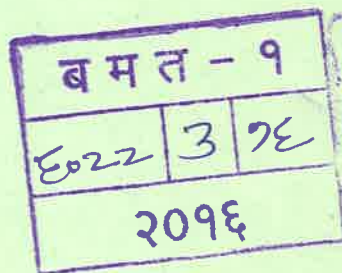 ब म त - १
६०२२ 3 २६
२०१६